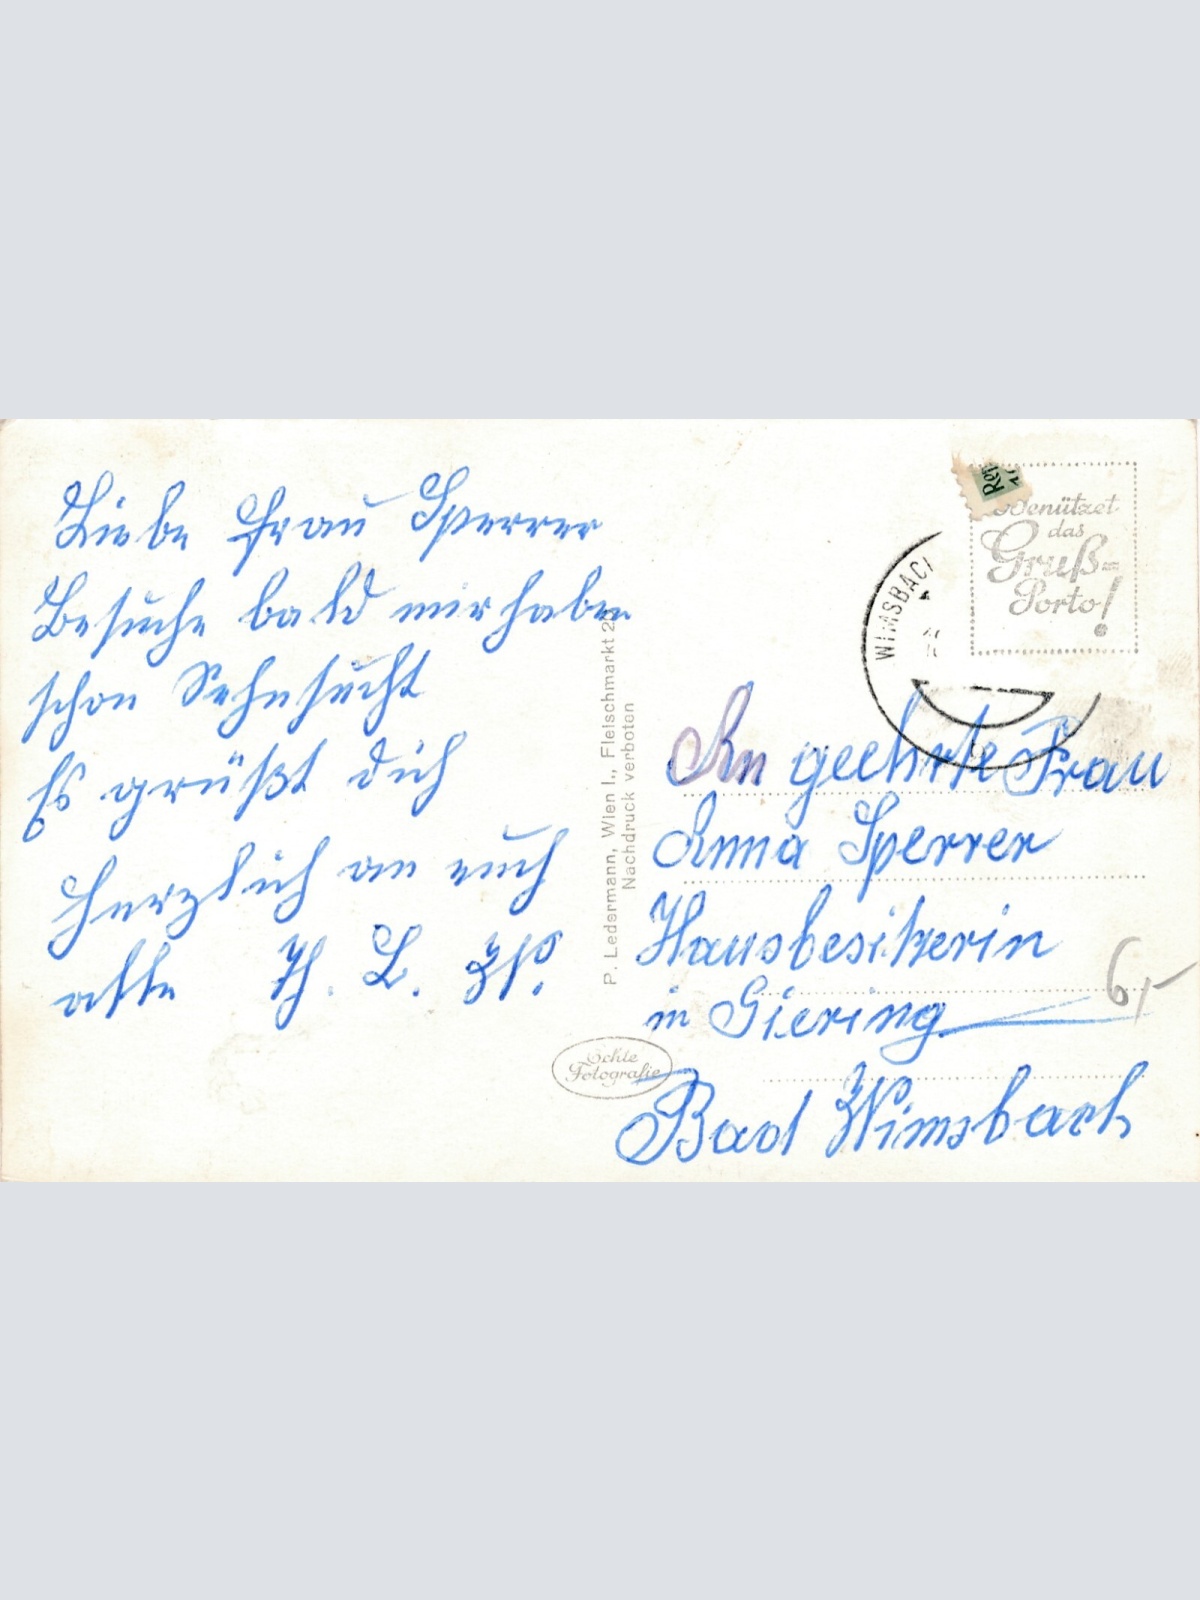 Liebe Frau Sperrer
Besuche bald mir haben
schon Sehnsucht
Es grüßt dich
Herzlich an euch
alle Th. L. W.
P. Ledermann, Wien I., Fleischmarkt 20
Nachdruck verboten
Echte
Fotografie
WIMSBACH
Benützet
das
Gruß=
Porto!
An geehrte Frau
Anna Sperrer
Hausbesitzerin
in Giering
6,-
Bad Wimsbach